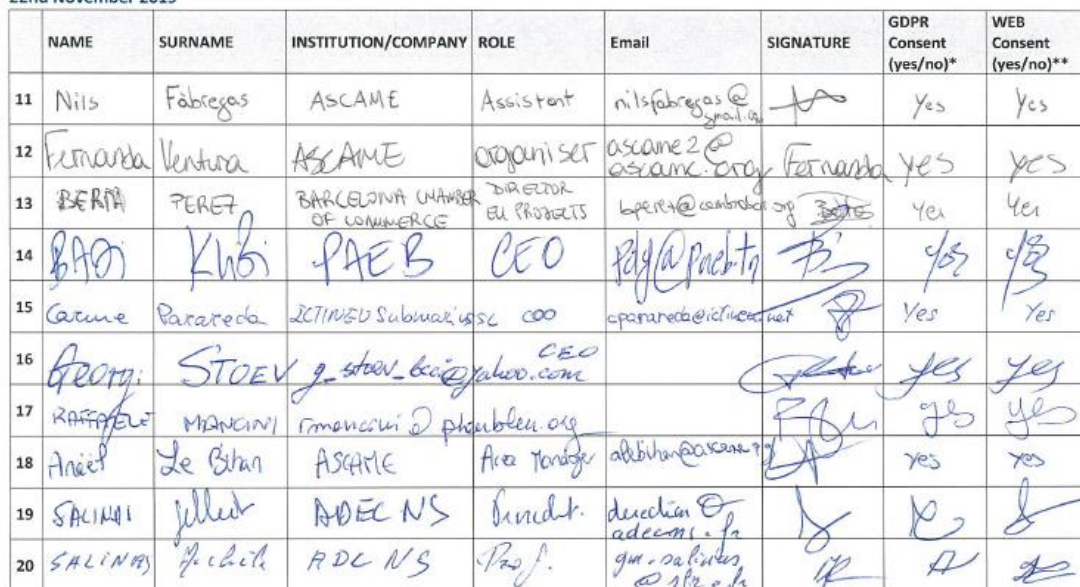 22nd November 2019
NAME SURNAME INSTITUTION/COMPANY ROLE Email SIGNATURE GDPR Consent (yes/no)* WEB Consent (yes/no)**
11 Nils Fàbregas ASCAME Assistant nilsfabregas@gmail.com Yes Yes
12 Fernanda Ventura ASCAME organiser ascame2@ascame.org Fernanda yes yes
13 BERTA PEREZ BARCELONA CHAMBER OF COMMERCE DIRECTOR EU PROJECTS Yes Yes
14 Khibi PAEB CEO yes yes
15 Carme Parareda ICTINEU Submarins SL COO Yes Yes
16 Georgi STOEV g_stoev_bcci@yahoo.com CEO yes yes
17 RAFFAELE MANCINI rmancini@planbleu.org yes yes
18 Anaël Le Bihan ASCAME Area Manager alebihan@ascame.org yes yes
19 SALINAS ADEC NS direction@adecns.fr
20 SALINAS ADEC NS Prof.